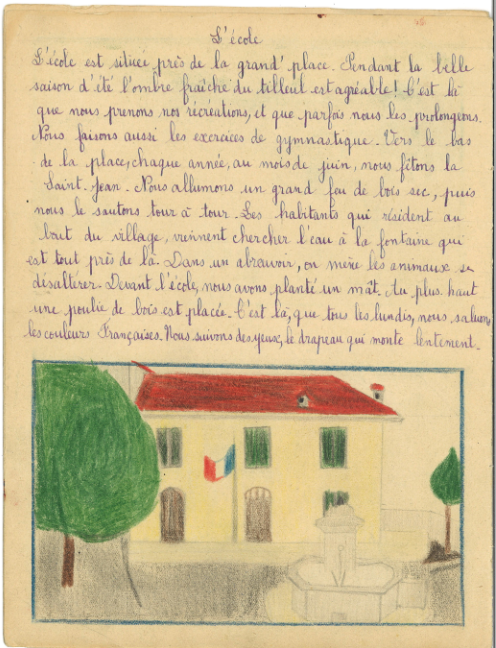 L'école
L'école est située près de la grand' place. Pendant la belle
saison d'été l'ombre fraîche du tilleul est agréable! C'est là
que nous prenons nos récréations, et que parfois nous les prolongeons.
Nous faisons aussi les exercices de gymnastique. Vers le bas
de la place, chaque année, au mois de juin, nous fêtons la
Saint-Jean. Nous allumons un grand feu de bois sec, puis
nous le sautons tour à tour. Les habitants qui résident au
bout du village, viennent chercher l'eau à la fontaine qui
est tout près de là. Dans un abreuvoir, on mène les animaux se
désaltérer. Devant l'école, nous avons planté un mât. Au plus haut
une poulie de bois est placée. C'est là, que tous les lundis, nous saluons
les couleurs Françaises. Nous suivons des yeux, le drapeau qui monte lentement.